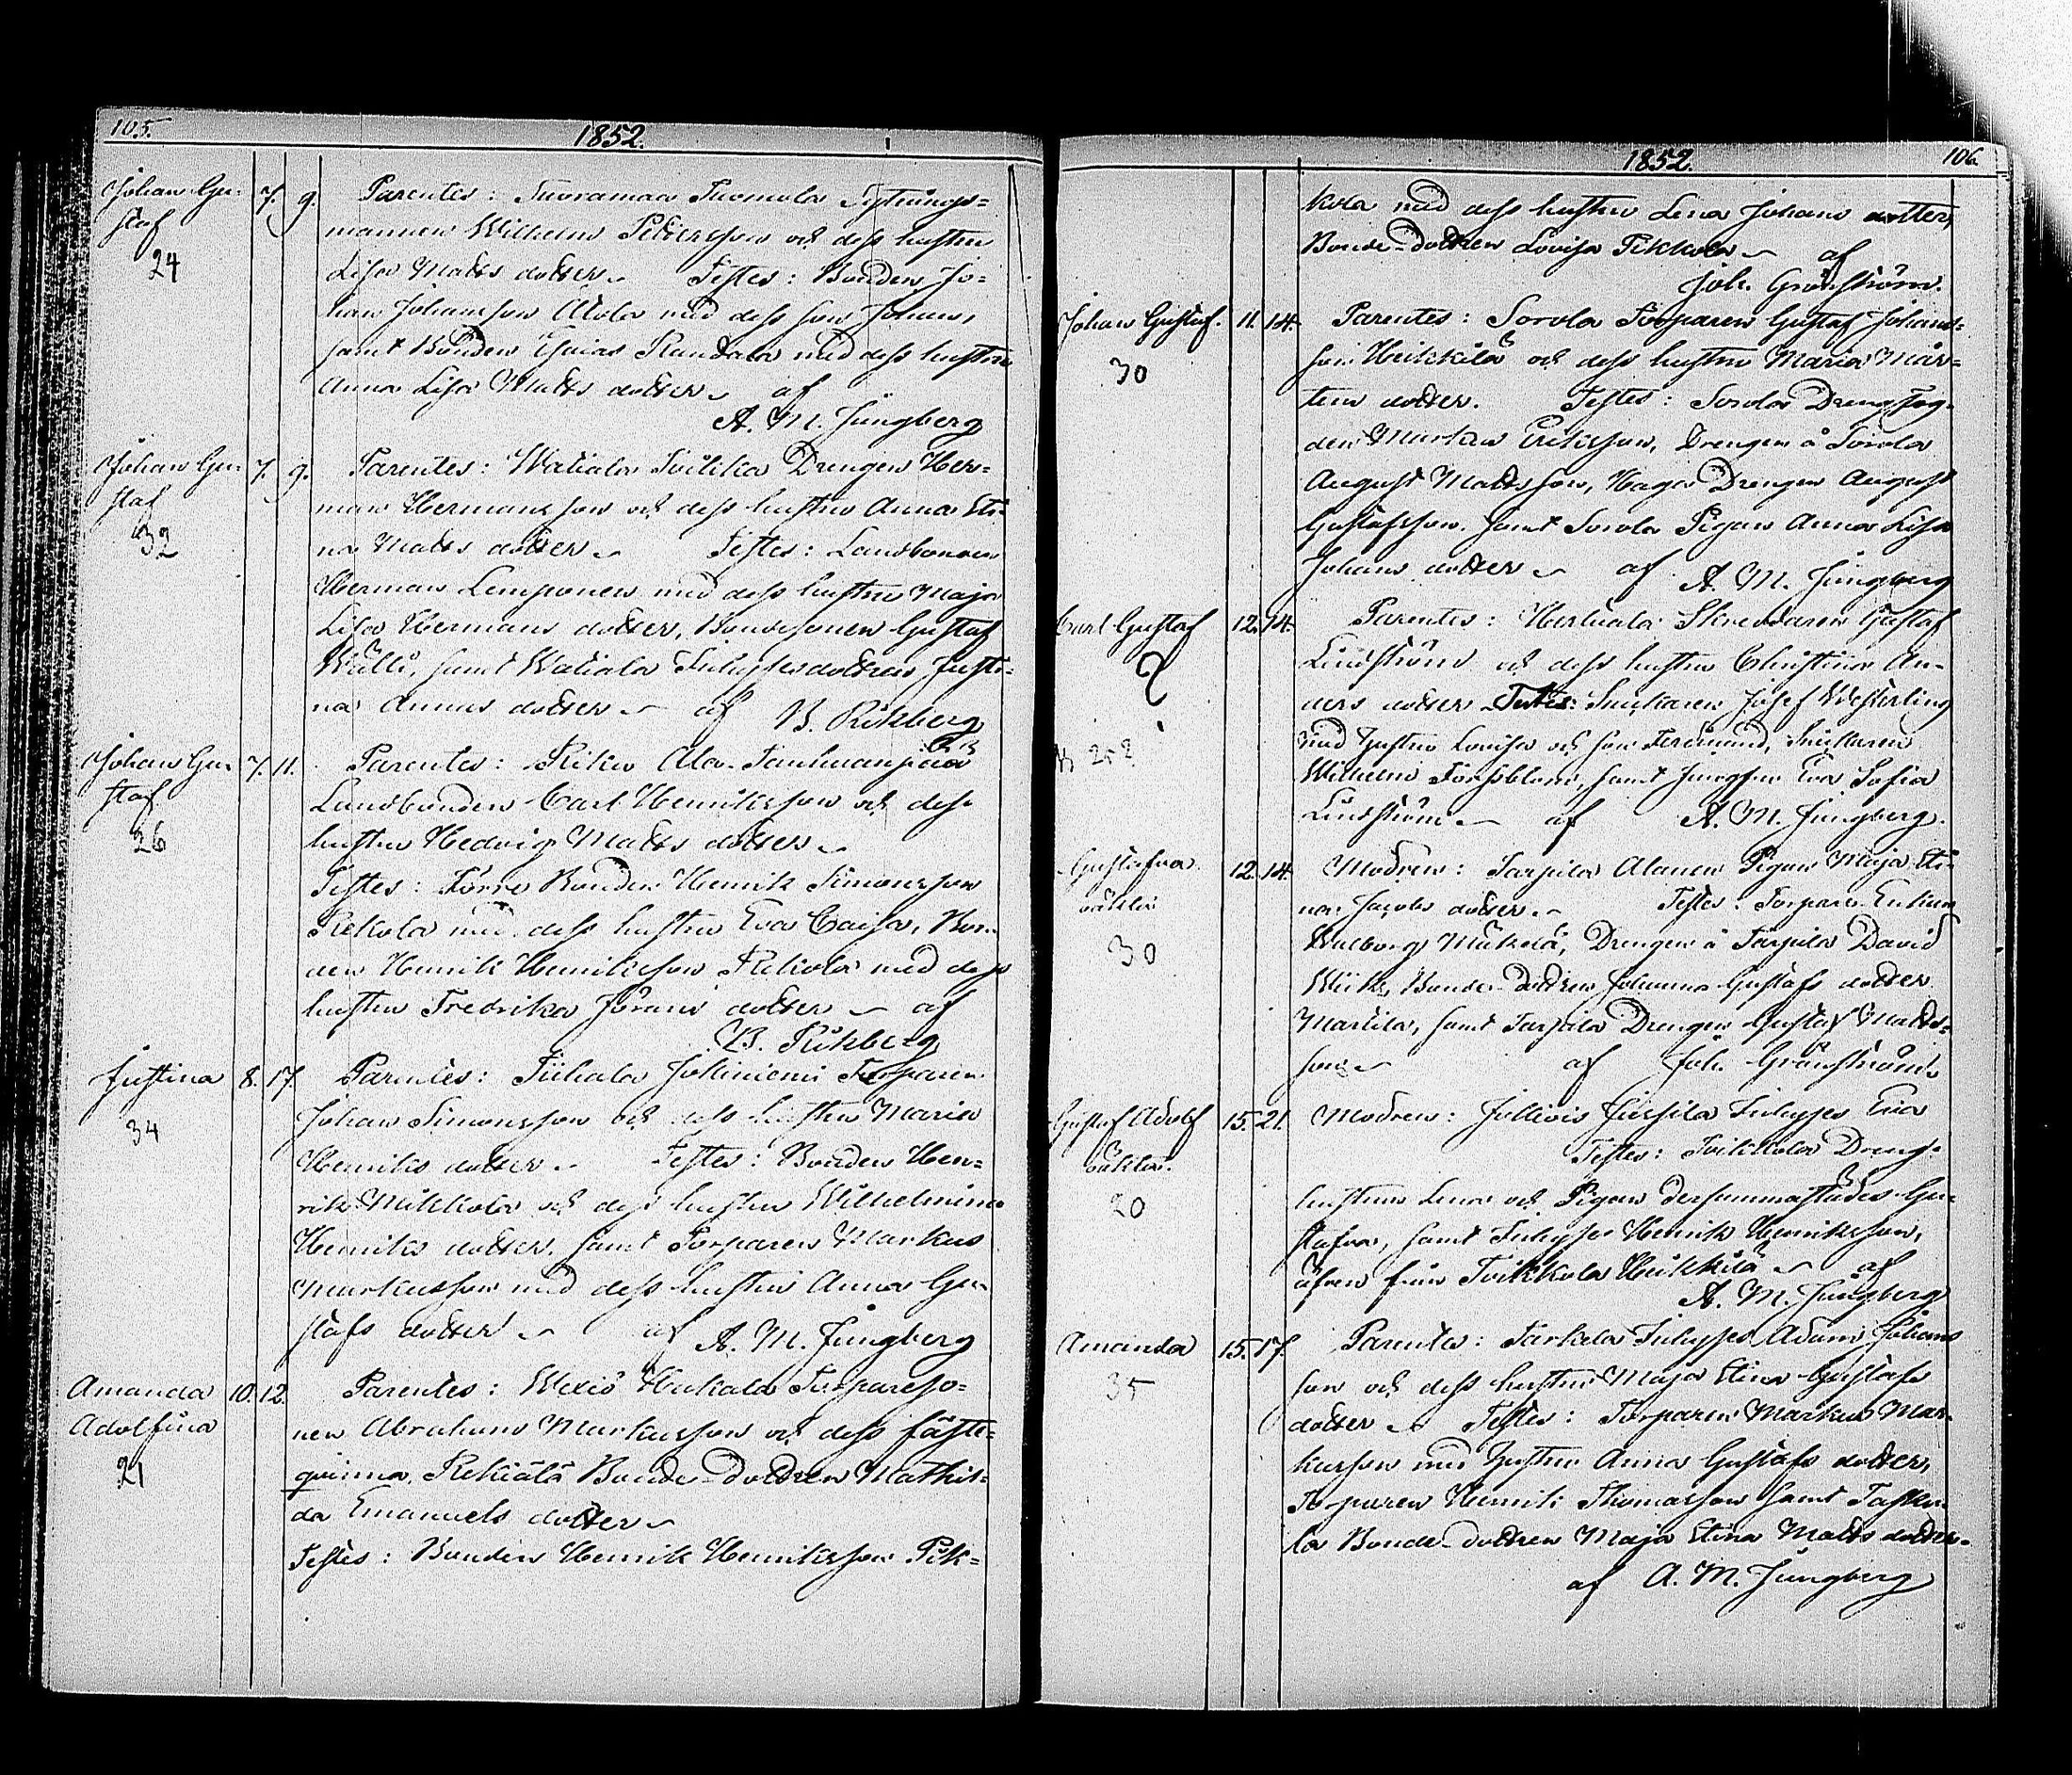 105.
1852.
Johan Gu- 7. 9. Parentes: Suoramaa Tuomola
staf mannen Wilhelm Pettersson och dess hustru
24 Lisa Matts dotter. Testes: Bonden Jo-
han Johansson Alola med dess son Johan,
samt Bonden Esaias Randala med dess hustru
Anna Lisa Matts dotter af
A. M. Jungberg
Johan Gu- 7. 9. Parentes: Watiala Drengen Her-
staf man Hermansson och dess hustru Anna Sti-
32 na Matts dotter. Testes: Landbonden
Herman Lemponen med dess hustru Maja
Lisa Hermans dotter, Bondesonen Gustaf
Wälli, samt Watiala Inhysesdottren Justi-
na Annas dotter af B. Rikberg
Johan Gu- 7. 11. Parentes: Riku Ala-
staf Landbonden Carl Henriksson och dess
26 hustru Hedvig Matts dotter
Testes: Förre Bonden Henrik Simonsson
Rekola med dess hustru Eva Caisa, Bon-
den Henrik Henriksson Rekola med dess
hustru Fredrika Jörans dotter af
B. Rikberg
Justina 8. 17. Parentes: Tiihala Torparen
34 Johan Simonsson och dess hustru Maria
Henriks dotter Testes: Bonden Hen-
rik Mikkola och dess hustru Wilhelmina
Henriks dotter, samt Torparen Markus
Markusson med dess hustru Anna Gu-
stafs dotter af A. M. Jungberg
Amanda 10. 12. Parentes: Torpareso-
Adolfina nen Abraham Markusson och dess fäste-
21 qvinna, Rekiälä Bonde-dottren Mathil-
da Emanuels dotter
Testes: Bonden Henrik Henriksson Pik-
1852.
106
kola med dess hustru Lena Johans dotter,
Bonde-dottren Lovisa Pikkola af
Joh. Grönström.
Johan Gustaf. 11. 14. Parentes: Sorola Torparen Gustaf Johans-
30 son Heikkilä och dess hustru Maria Mår-
tens dotter. Testes: Sorola Drengfog-
den Markus Eriksson, Drengen å Sorola
August Mattsson, Haga Drengen August
Gustafsson, samt Sorola Pigan Anna Lisa
Johans dotter af A. M. Jungberg
Carl Gustaf 12. 14. Parentes: Herttuala Skreddaren Gustaf
? Lindström och dess hustru Christina An-
ders dotter Testes: Snickaren Josef Westerling
med hustru Lovisa och son Ferdinand, Snickaren
252 Wilhelm Forsblom, samt Jungfru Eva Sofia
Lindström af A. M. Jungberg.
Gustafva 12. 14. Modren: Tarpila Alanen Pigan Maja Sti-
oäkta na Jacobs dotter. Testes: Torpare Enkan
30 Walborg Mäkelä, Drengen å Tarpila David
Wiik, Bonde-dottren Johanna Gustafs dotter
Martila, samt Tarpila Drengen Gustaf Matts-
son af Joh. Grönström
Gustaf Adolf 15. 21. Modren: Jussila Inhyses Eva
oäkta. Testes: Tvikkola Dreng-
20 hustrun Lena och Pigan dersammastädes Gu-
stafva, samt Inhyses Henrik Henriksson,
äfven från Tvikkola Heikkilä af
A. M. Jungberg
Amanda 15. 17. Parentes: Tarkela Inhyses Adam Johans
35 son och dess hustru Maja Stina Gustafs
dotter Testes: Torparen Markus Mar-
kusson med hustru Anna Gustafs dotter,
Torparen Henrik Thomasson samt
la Bonde-dottren Maja Stina Matts dotter
af A. M. Jungberg